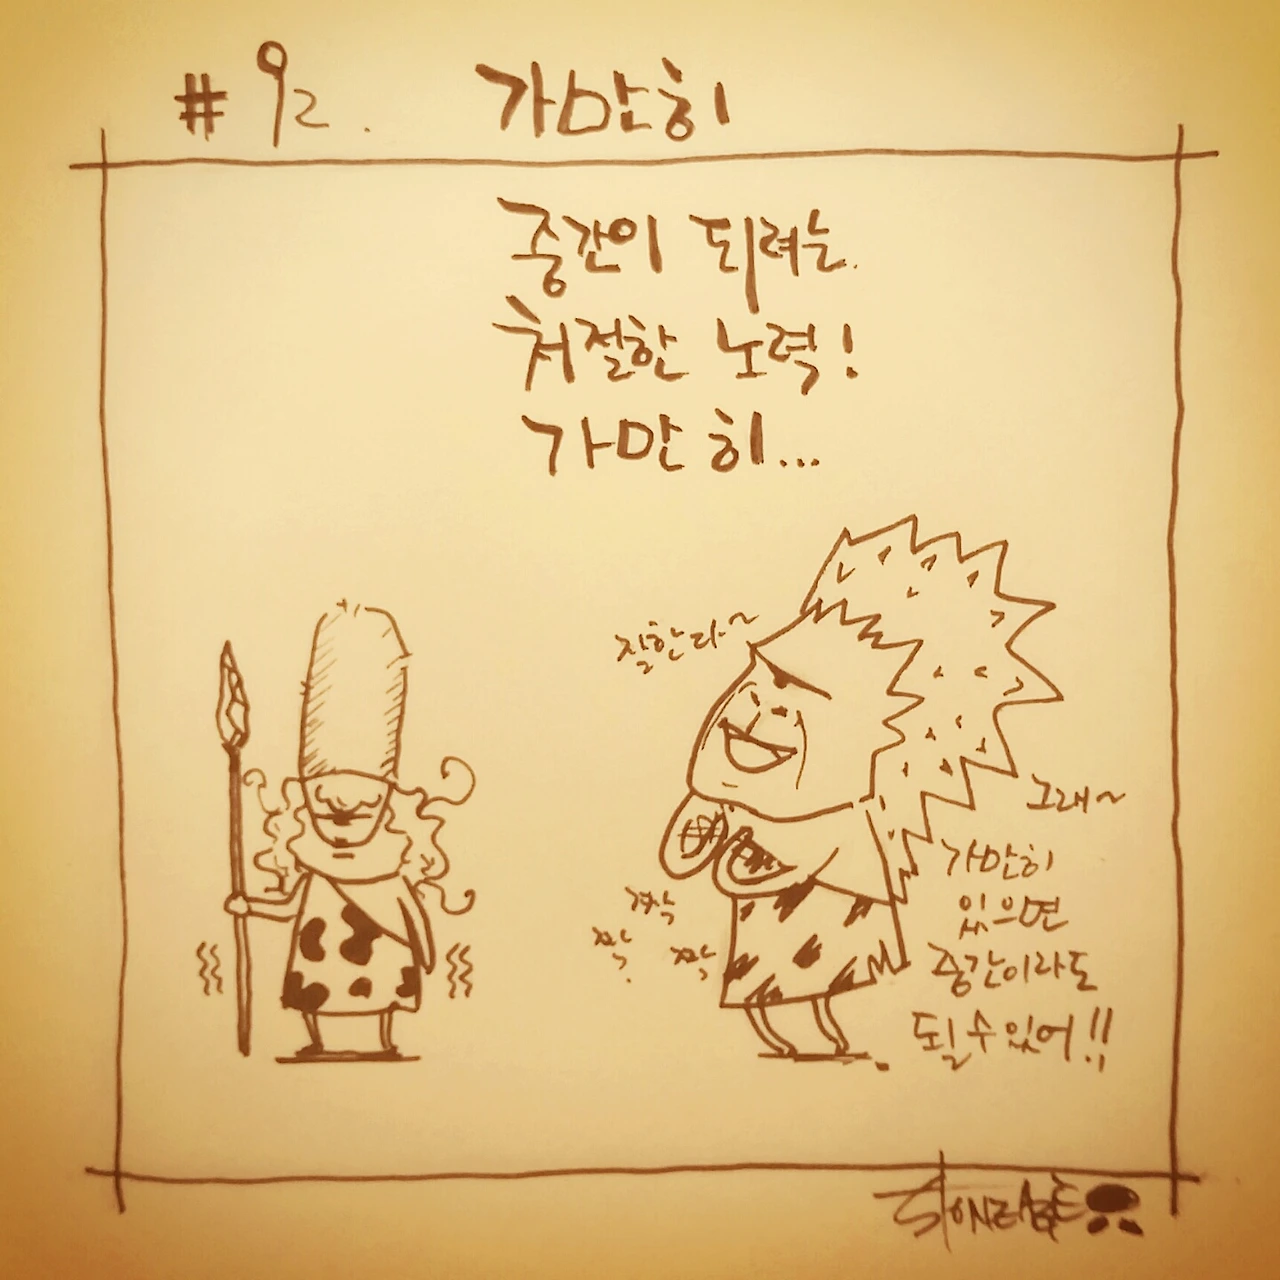 #92. 가만히
중간이 되려는
처절한 노력!
가만히...
잘한다~
짝
짝
짝
그래~
가만히
있으면
중간이라도
될 수 있어!!
STONEAGE